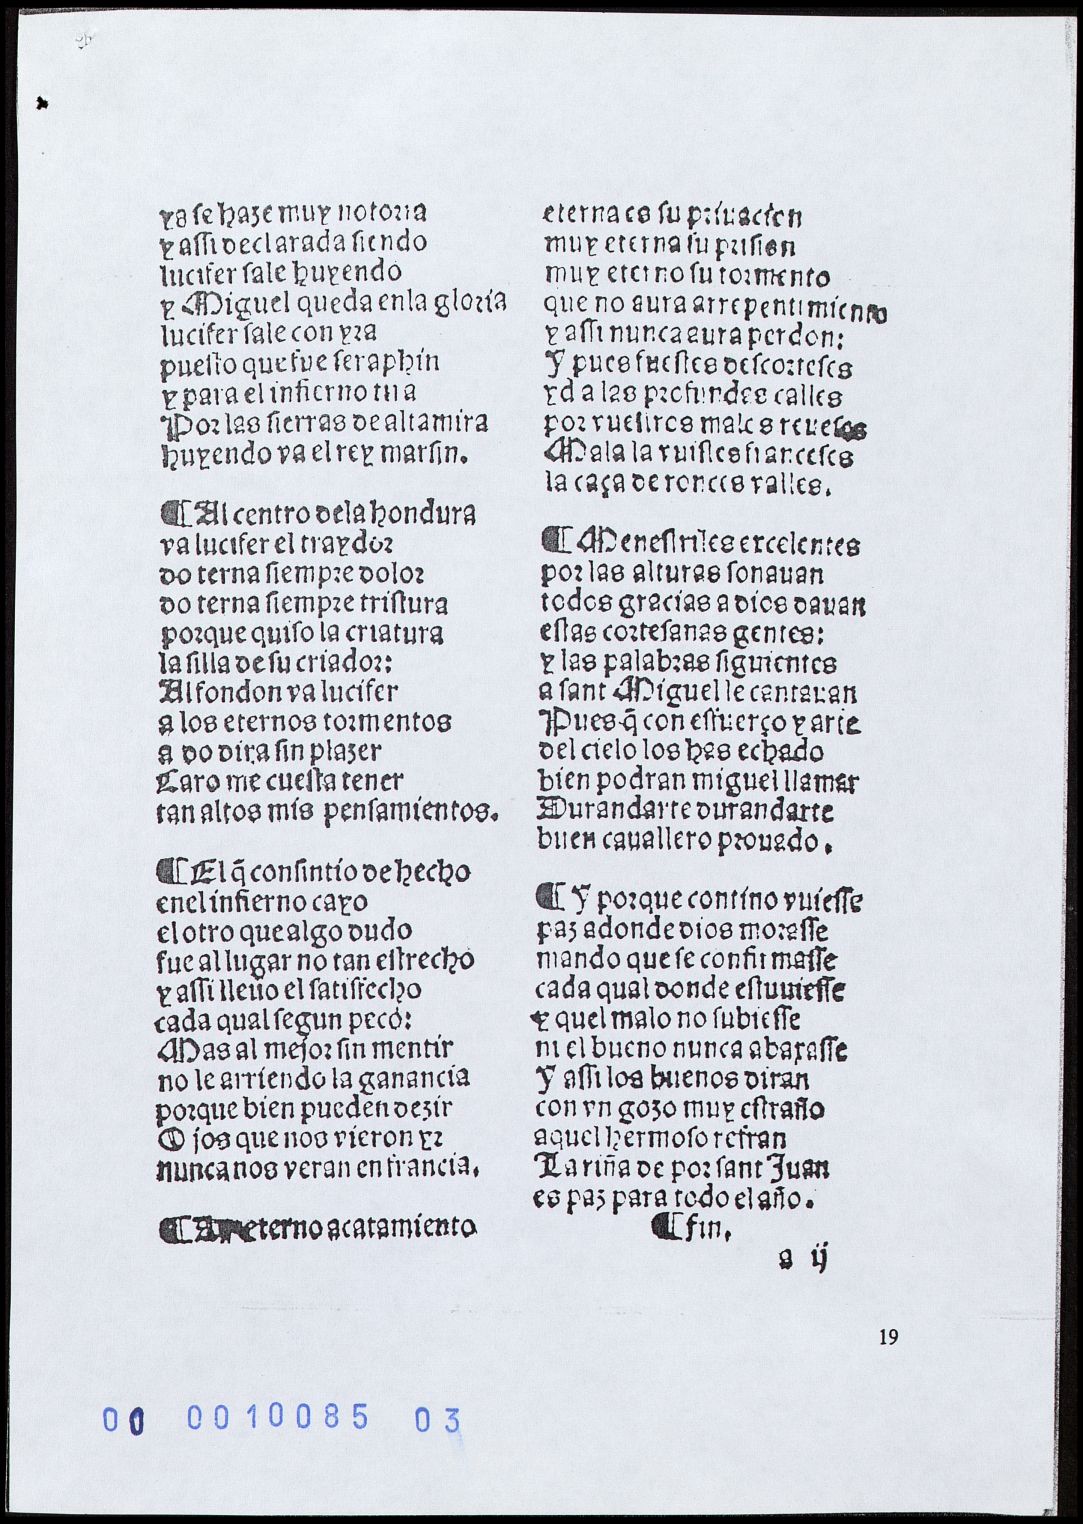 ya se haze muy notoria
y assi declarada siendo
lucifer sale huyendo
y Miguel queda enla gloria
lucifer sale con yra
puesto que fue seraphin
y para el infierno tira
Por las sierras de altamira
huyendo va el rey marsin.
¶ Al centro dela hondura
va lucifer el traydor
do terna siempre dolor
do terna siempre tristura
porque quiso la criatura
la silla de su criador:
Al fondon va lucifer
a los eternos tormentos
a do dira sin plazer
Caro me cuesta tener
tan altos mis pensamientos.
¶ El q̃ consintio de hecho
enel infierno cayo
el otro que algo dudo
fue al lugar no tan estrecho
y assi lleuo el satisfecho
cada qual segun peco:
Mas al mejor sin mentir
no le arriendo la ganancia
porque bien pueden dezir
O jos que nos vieron yr
nunca nos veran en francia.
¶ eterno acatamiento
eterna es su priuacion
muy eterna su prision
muy eterno su tormento
que no aura arrepentimiento
y assi nunca aura perdon:
Y pues fuestes descorteses
yd a las profundas calles
por vuestros males reueses
Mala la vuistes franceses
la caça de ronces valles.
¶ Menestriles excelentes
por las alturas sonauan
todos gracias a dios dauan
estas cortesanas gentes:
y las palabras siguientes
a sant Miguel le cantauan
Pues q̃ con esfuerço y arte
del cielo los has echado
bien podran miguel llamar
Durandarte durandarte
buen cauallero prouado.
¶ Y porque contino vuiesse
paz adonde dios morasse
mando que se confirmasse
cada qual donde estuuiesse
y quel malo no subiesse
ni el bueno nunca abaxasse
Y assi los buenos diran
con vn gozo muy estraño
aquel hermoso refran
La riña de por sant Juan
es paz para todo el año.
¶ fin.
a ij
19
00 0010085 03